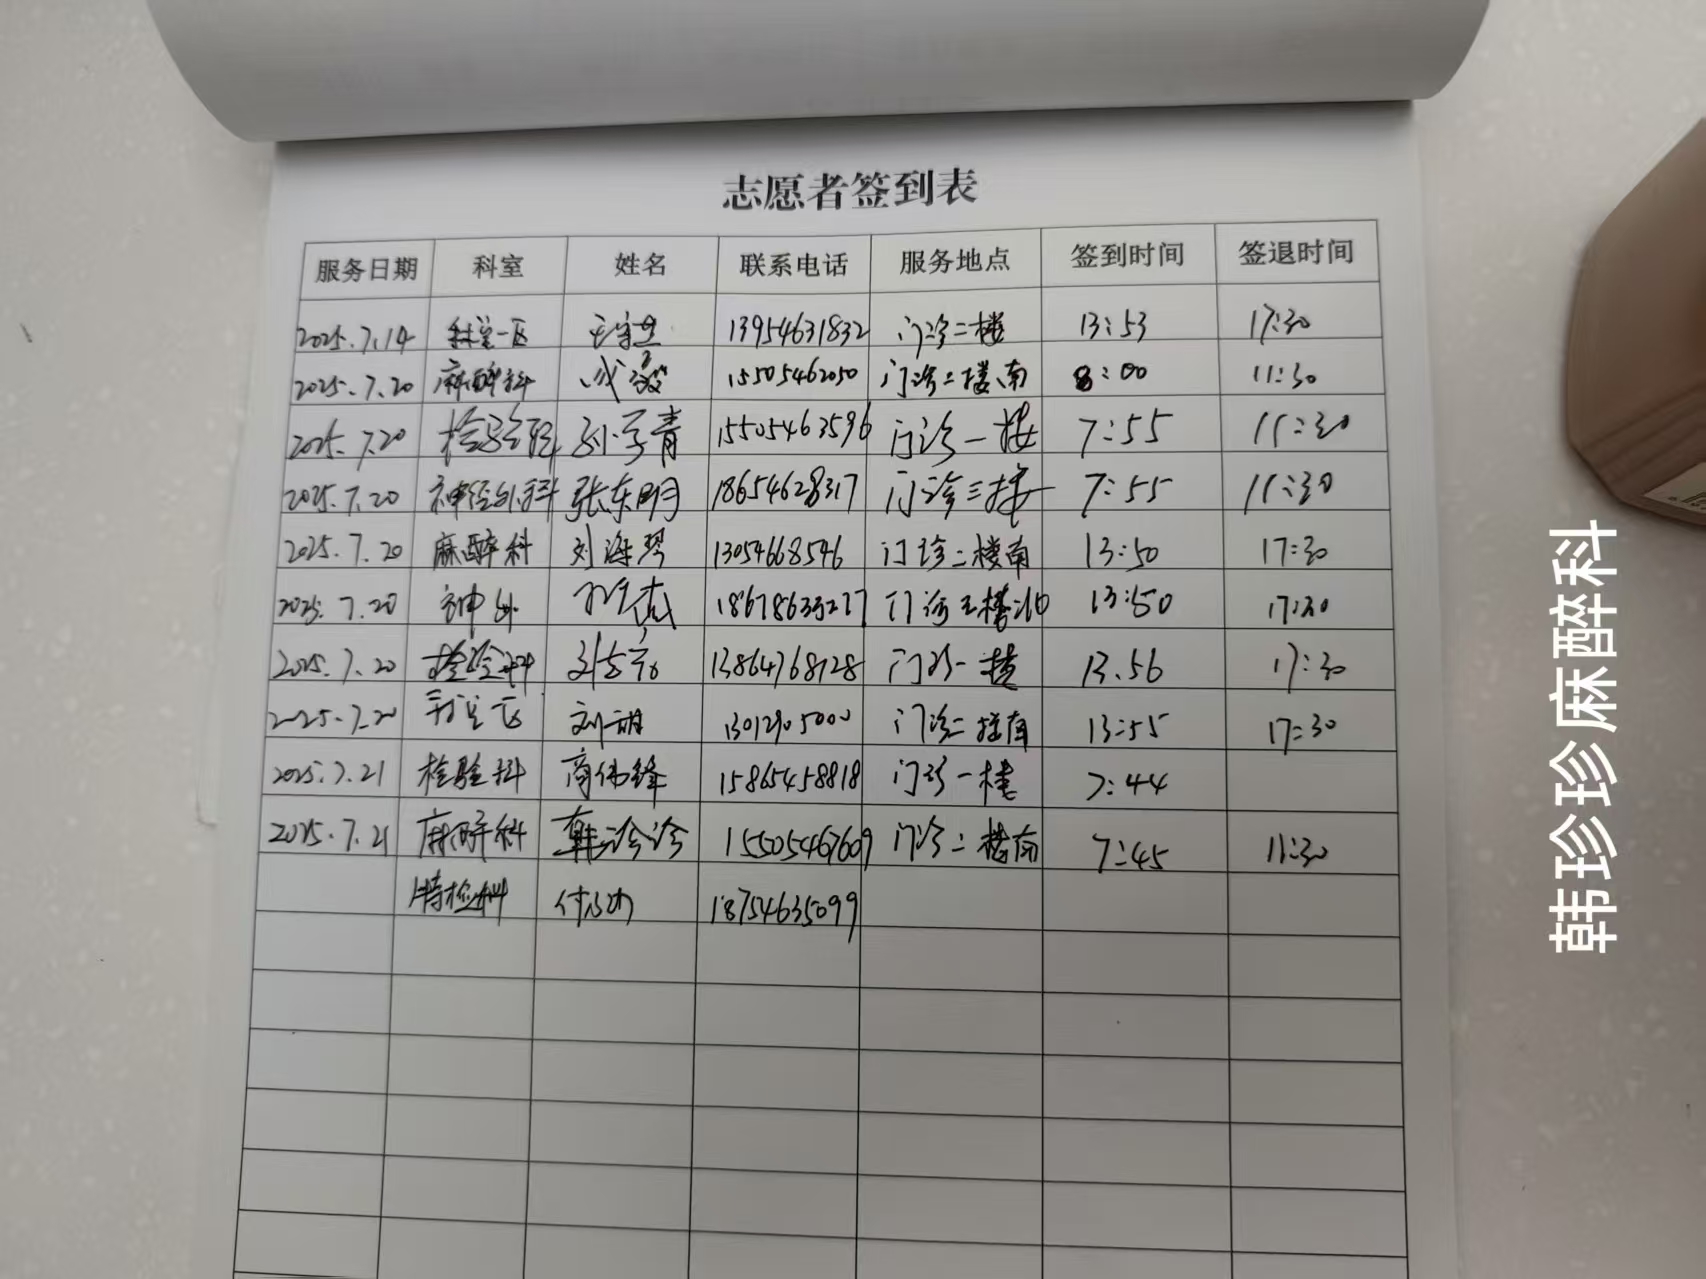 志愿者签到表
服务日期 科室 姓名 联系电话 服务地点 签到时间 签退时间
2025.7.14 一区 13954631832 门诊二楼 13:53 17:30
2025.7.20 麻醉科 15505462050 门诊二楼南 8:00 11:30
2025.7.20 检验科 孙学青 15505463596 门诊一楼 7:55 11:30
2025.7.20 神经外科 张东明 18654628317 门诊三楼 7:55 11:30
2025.7.20 麻醉科 刘海琴 13054668546 门诊二楼南 13:50 17:30
2025.7.20 神外 门诊三楼北 13:50 17:30
2025.7.20 检验科 13864768728 门诊一楼 13.56 17:30
2025.7.20 刘明 13012905000 门诊二楼南 13:55 17:30
2025.7.21 检验科 商伟锋 15865458818 门诊一楼 7:44
2025.7.21 麻醉科 韩诊诊 15505467609 门诊二楼南 7:45 11:30
特检科 18754635099
韩珍珍麻醉科